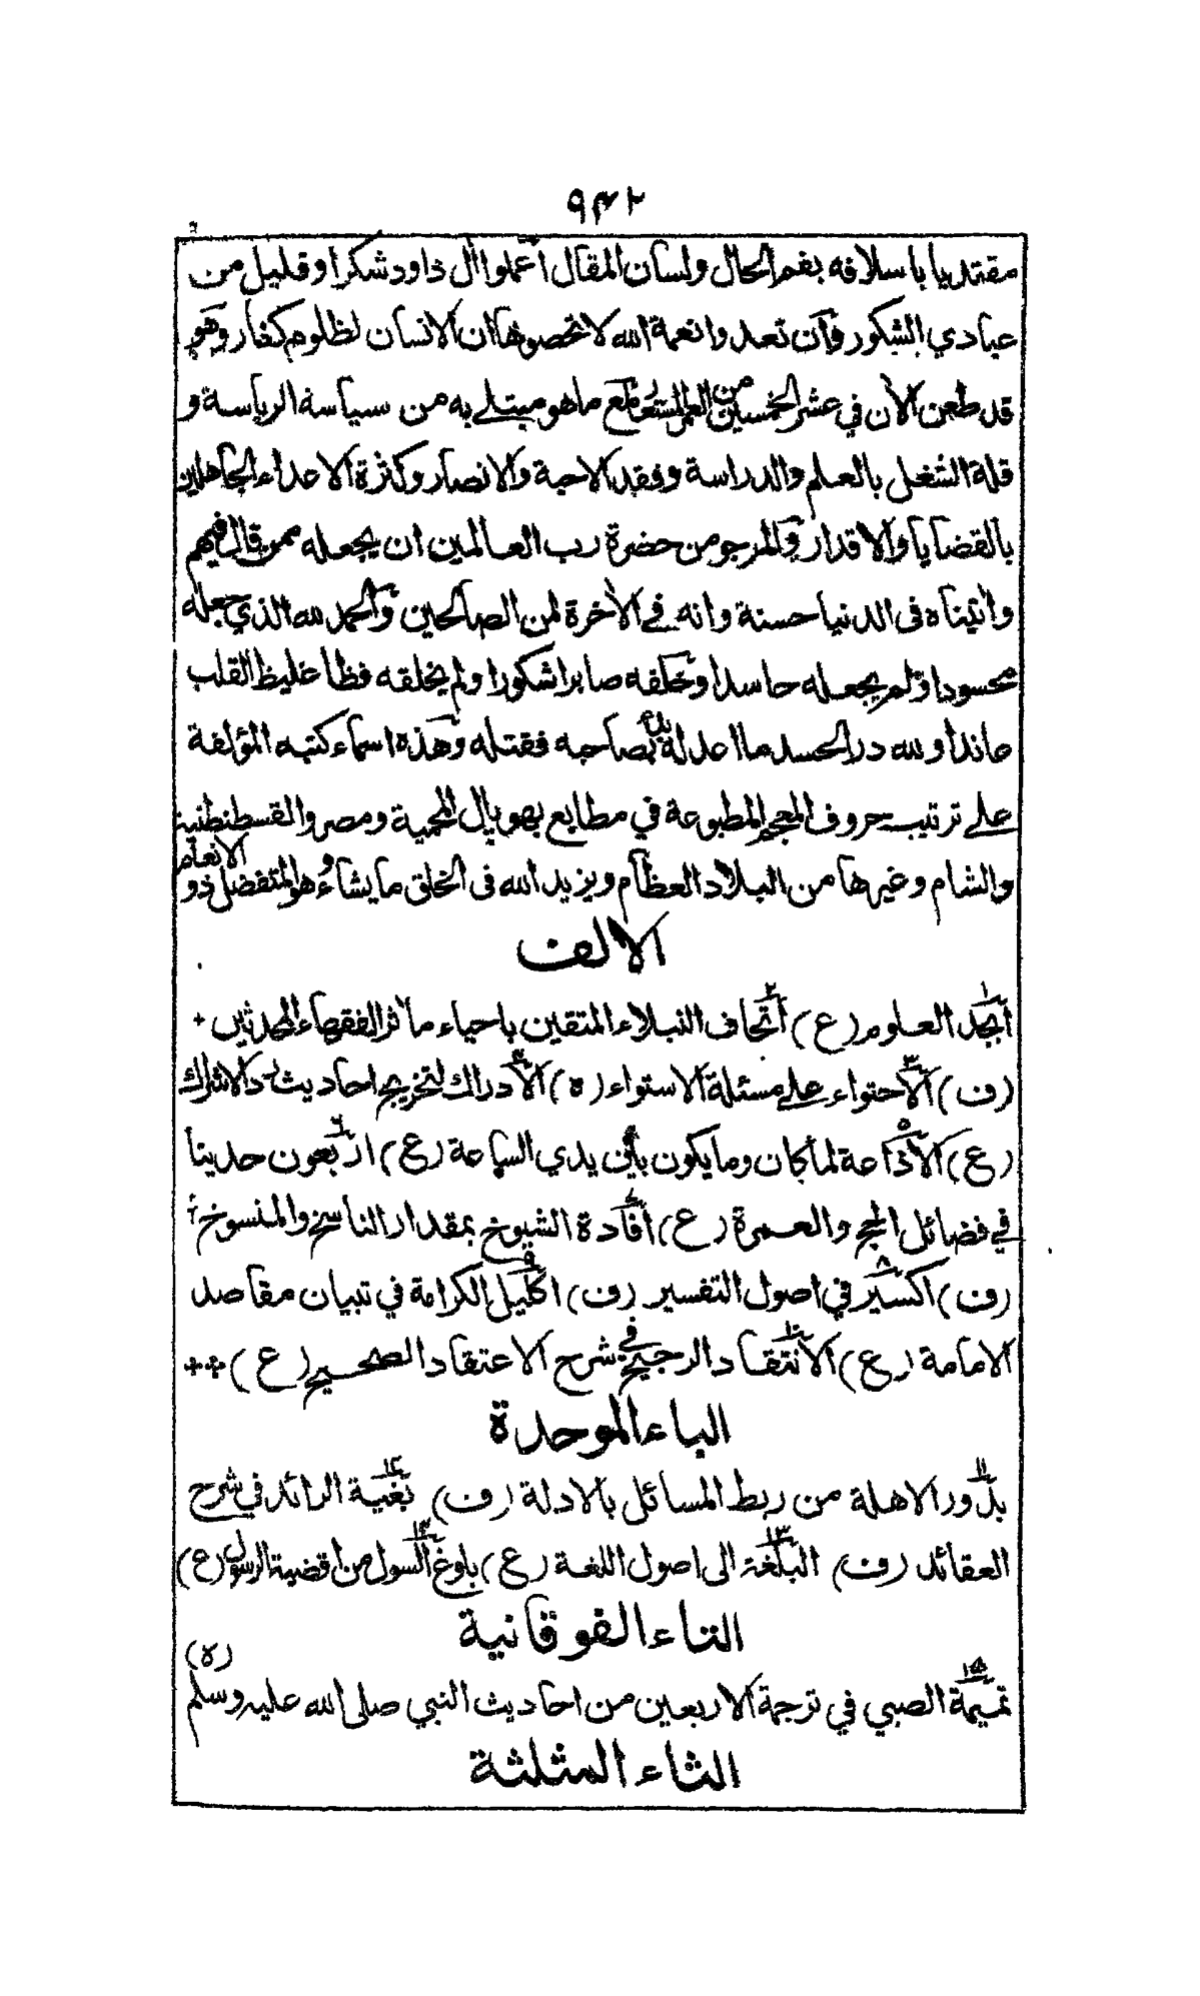 ٩٤٢
مقتديا باسلافه بفم الحال ولسان المقال اعملوا أل داود شكرا وقليل من
عبادي الشكور وان تعدوا نعمة الله لا تحصوها ان الانسان لظلوم كفار وهو
قد طعن الأن في عشر الخمسين من العمر المستعار مع ما هو مبتلے به من سياسة الرياسة و
قلة الشغل بالعلم والدراسة وفقد الاحبة والانصار وكثرة الاعداء الجاهلين
بالقضايا والاقدار والمرجو من حضرة رب العالمين ان يجعله ممن قال فيهم
وأتيناه فى الدنيا حسنة وانه فے الأخرة لمن الصالحين والحمد لله الذي جعله
محسودا ولم يجعله حاسدا وخلفه صابرا شكورا ولم يخلقه فظا غليظ القلب
عاندا ولله در الحسد ما اعدله بدء بصاحبه فقتله وهذه اسماء كتبه المؤلفة
علے ترتيب حروف المعجم المطبوعة في مطابع بهوپال المحمية ومصر والقسطنطنية
والشام وغيرها من البلاد العظام ويزيد الله فى الخلق ما يشاء وهو المتفضل ذو الانعام
الالف
١ ابجد العلوم (ع) ٢ اتحاف النبلاء المتقين باحياء مأثر الفقهاء المحدثين +
(ف) ٣ الاحتواء علے مسئلة الاستواء (ه) ٤ الادراك لتخريج احاديث رد الاشراك
(ع) ٥ الاذاعة لما كان وما يكون بين يدي الساعة (ع) ٦ اربعون حديثا
في فضائل الحج والعمرة (ع) ٧ افادة الشيوخ بمقدار الناسخ والمنسوخ
(ف) ٨ اكسير في اصول التفسير (ف) ٩ اكليل الكرامة في تبيان مقاصد
الامامة (ع) ١٠ الانتقاد الرجيح في شرح الاعتقاد الصحيح (ع) ++
الباء الموحدة
١١ بدور الاهلة من ربط المسائل بالادلة (ف) ١٢ بغية الرائد في شرح
العقائد (ف) ١٣ البلغة الى اصول اللغة (ع) ١٤ بلوغ السول من اقضية الرسول (ع)
التاء الفوقانية
١٥ تميمة الصبي في ترجمة الاربعين من احاديث النبي صلى الله عليه وسلم (ه)
الثاء المثلثة